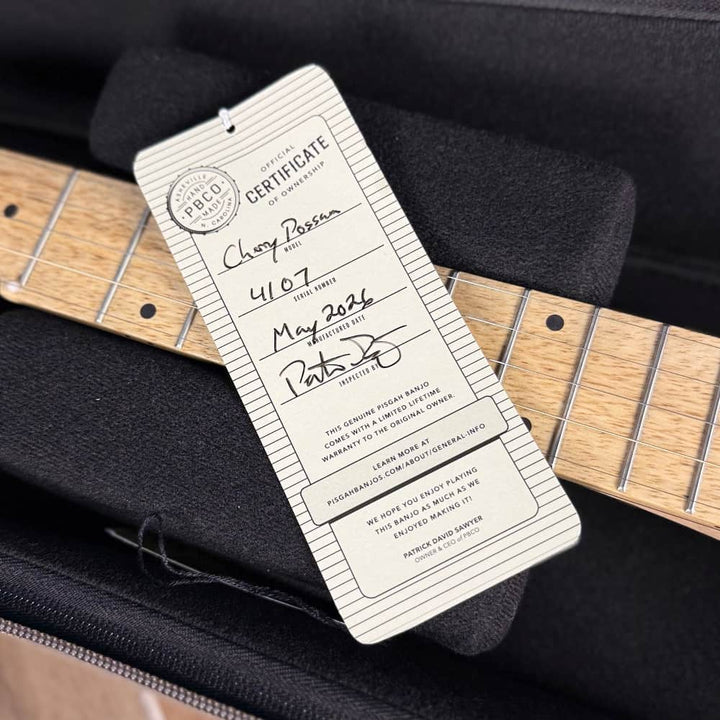 OFFICIAL
CERTIFICATE
OF OWNERSHIP
ASHEVILLE
HAND
PBCO
MADE
N. CAROLINA
Cherry Possum
MODEL
4107
SERIAL NUMBER
May 2026
MANUFACTURED DATE
INSPECTED BY
THIS GENUINE PISGAH BANJO
COMES WITH A LIMITED LIFETIME
WARRANTY TO THE ORIGINAL OWNER.
LEARN MORE AT
PISGAHBANJOS.COM/ABOUT/GENERAL-INFO
WE HOPE YOU ENJOY PLAYING
THIS BANJO AS MUCH AS WE
ENJOYED MAKING IT!
PATRICK DAVID SAWYER
OWNER & CEO of PBCO